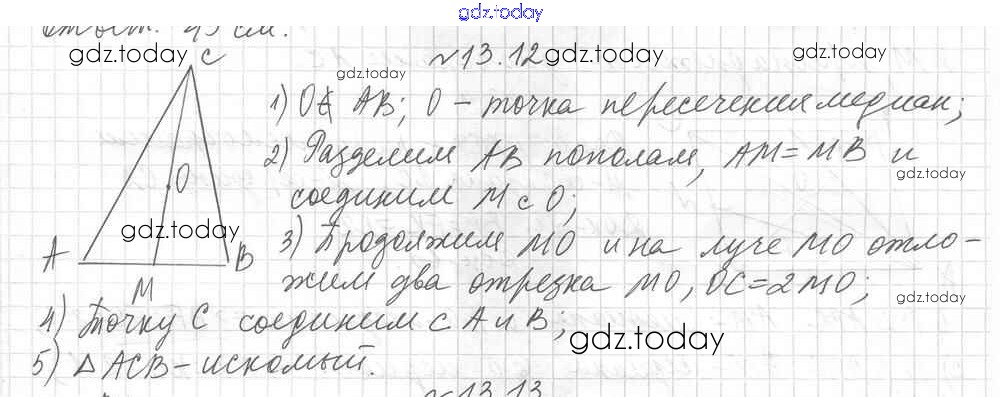 gdz.today
Ответ: 45 см.
№13.12
1) O∉ AB; O – точка пересечения медиан;
2) Разделим AB пополам, AM = MB и
соединим M с O;
3) Продолжим MO и на луче MO отло-
жим два отрезка MO, OC=2MO;
4) Точку C соединим с A и B;
5) △ACB – искомый.
№13.13
C
O
A
B
M
gdz.today
gdz.today
gdz.today
gdz.today
gdz.today
gdz.today
gdz.today
gdz.today